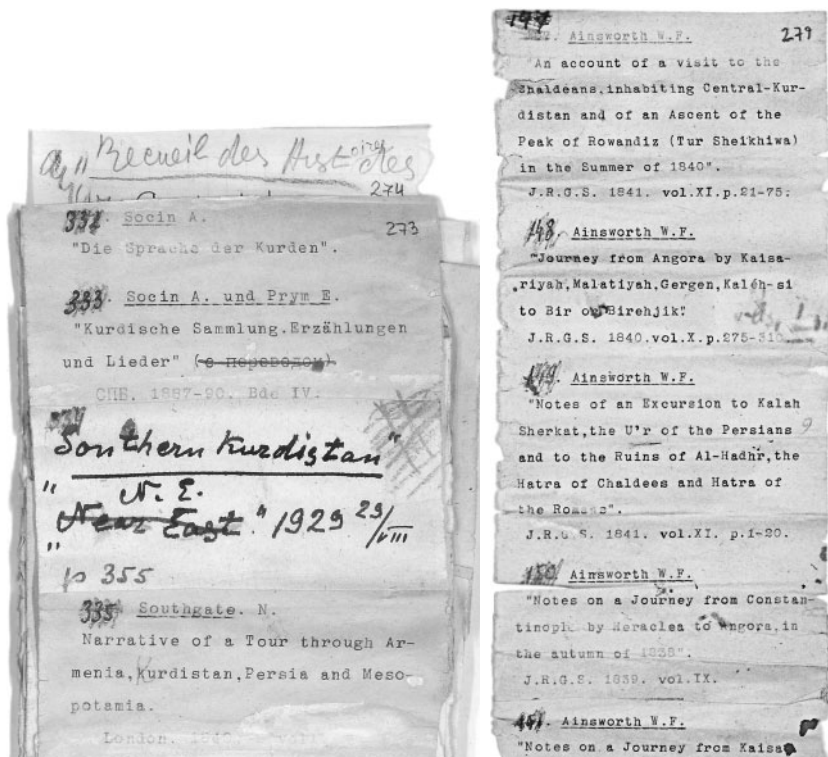 "Recueil des Historiens des
274
332. Socin A. 273
"Die Sprache der Kurden".
333. Socin A. und Prym E.
"Kurdische Sammlung.Erzählungen
und Lieder" (с переводом)
СПБ. 1887-90. Bde IV.
334
"Southern Kurdistan"
N. E.
"Near East." 1929 23/VIII
p 355
335. Southgate. N.
Narrative of a Tour through Ar-
menia,Kurdistan,Persia and Meso-
potamia.
London. 1840.
147. Ainsworth W.F. 279
"An account of a visit to the
Chaldeans,inhabiting Central-Kur-
distan and of an Ascent of the
Peak of Rowandiz (Tur Sheikhiwa)
in the Summer of 1840".
J.R.G.S. 1841. vol.XI.p.21-75.
148. Ainsworth W.F.
"Journey from Angora by Kaisa-
riyah,Malatiyah,Gergen,Kaleh-si
to Bir or Birehjik"
J.R.G.S. 1840.vol.X.p.275-310.
149. Ainsworth W.F.
"Notes of an Excursion to Kalah
Sherkat,the U'r of the Persians
and to the Ruins of Al-Hadhr,the
Hatra of Chaldees and Hatra of
the Romans".
J.R.G.S. 1841. vol.XI. p.1-20.
150. Ainsworth W.F.
"Notes on a Journey from Constan-
tinople by Heraclea to Angora,in
the autumn of 1838".
J.R.G.S. 1839. vol.IX.
151. Ainsworth W.F.
"Notes on a Journey from Kaisa